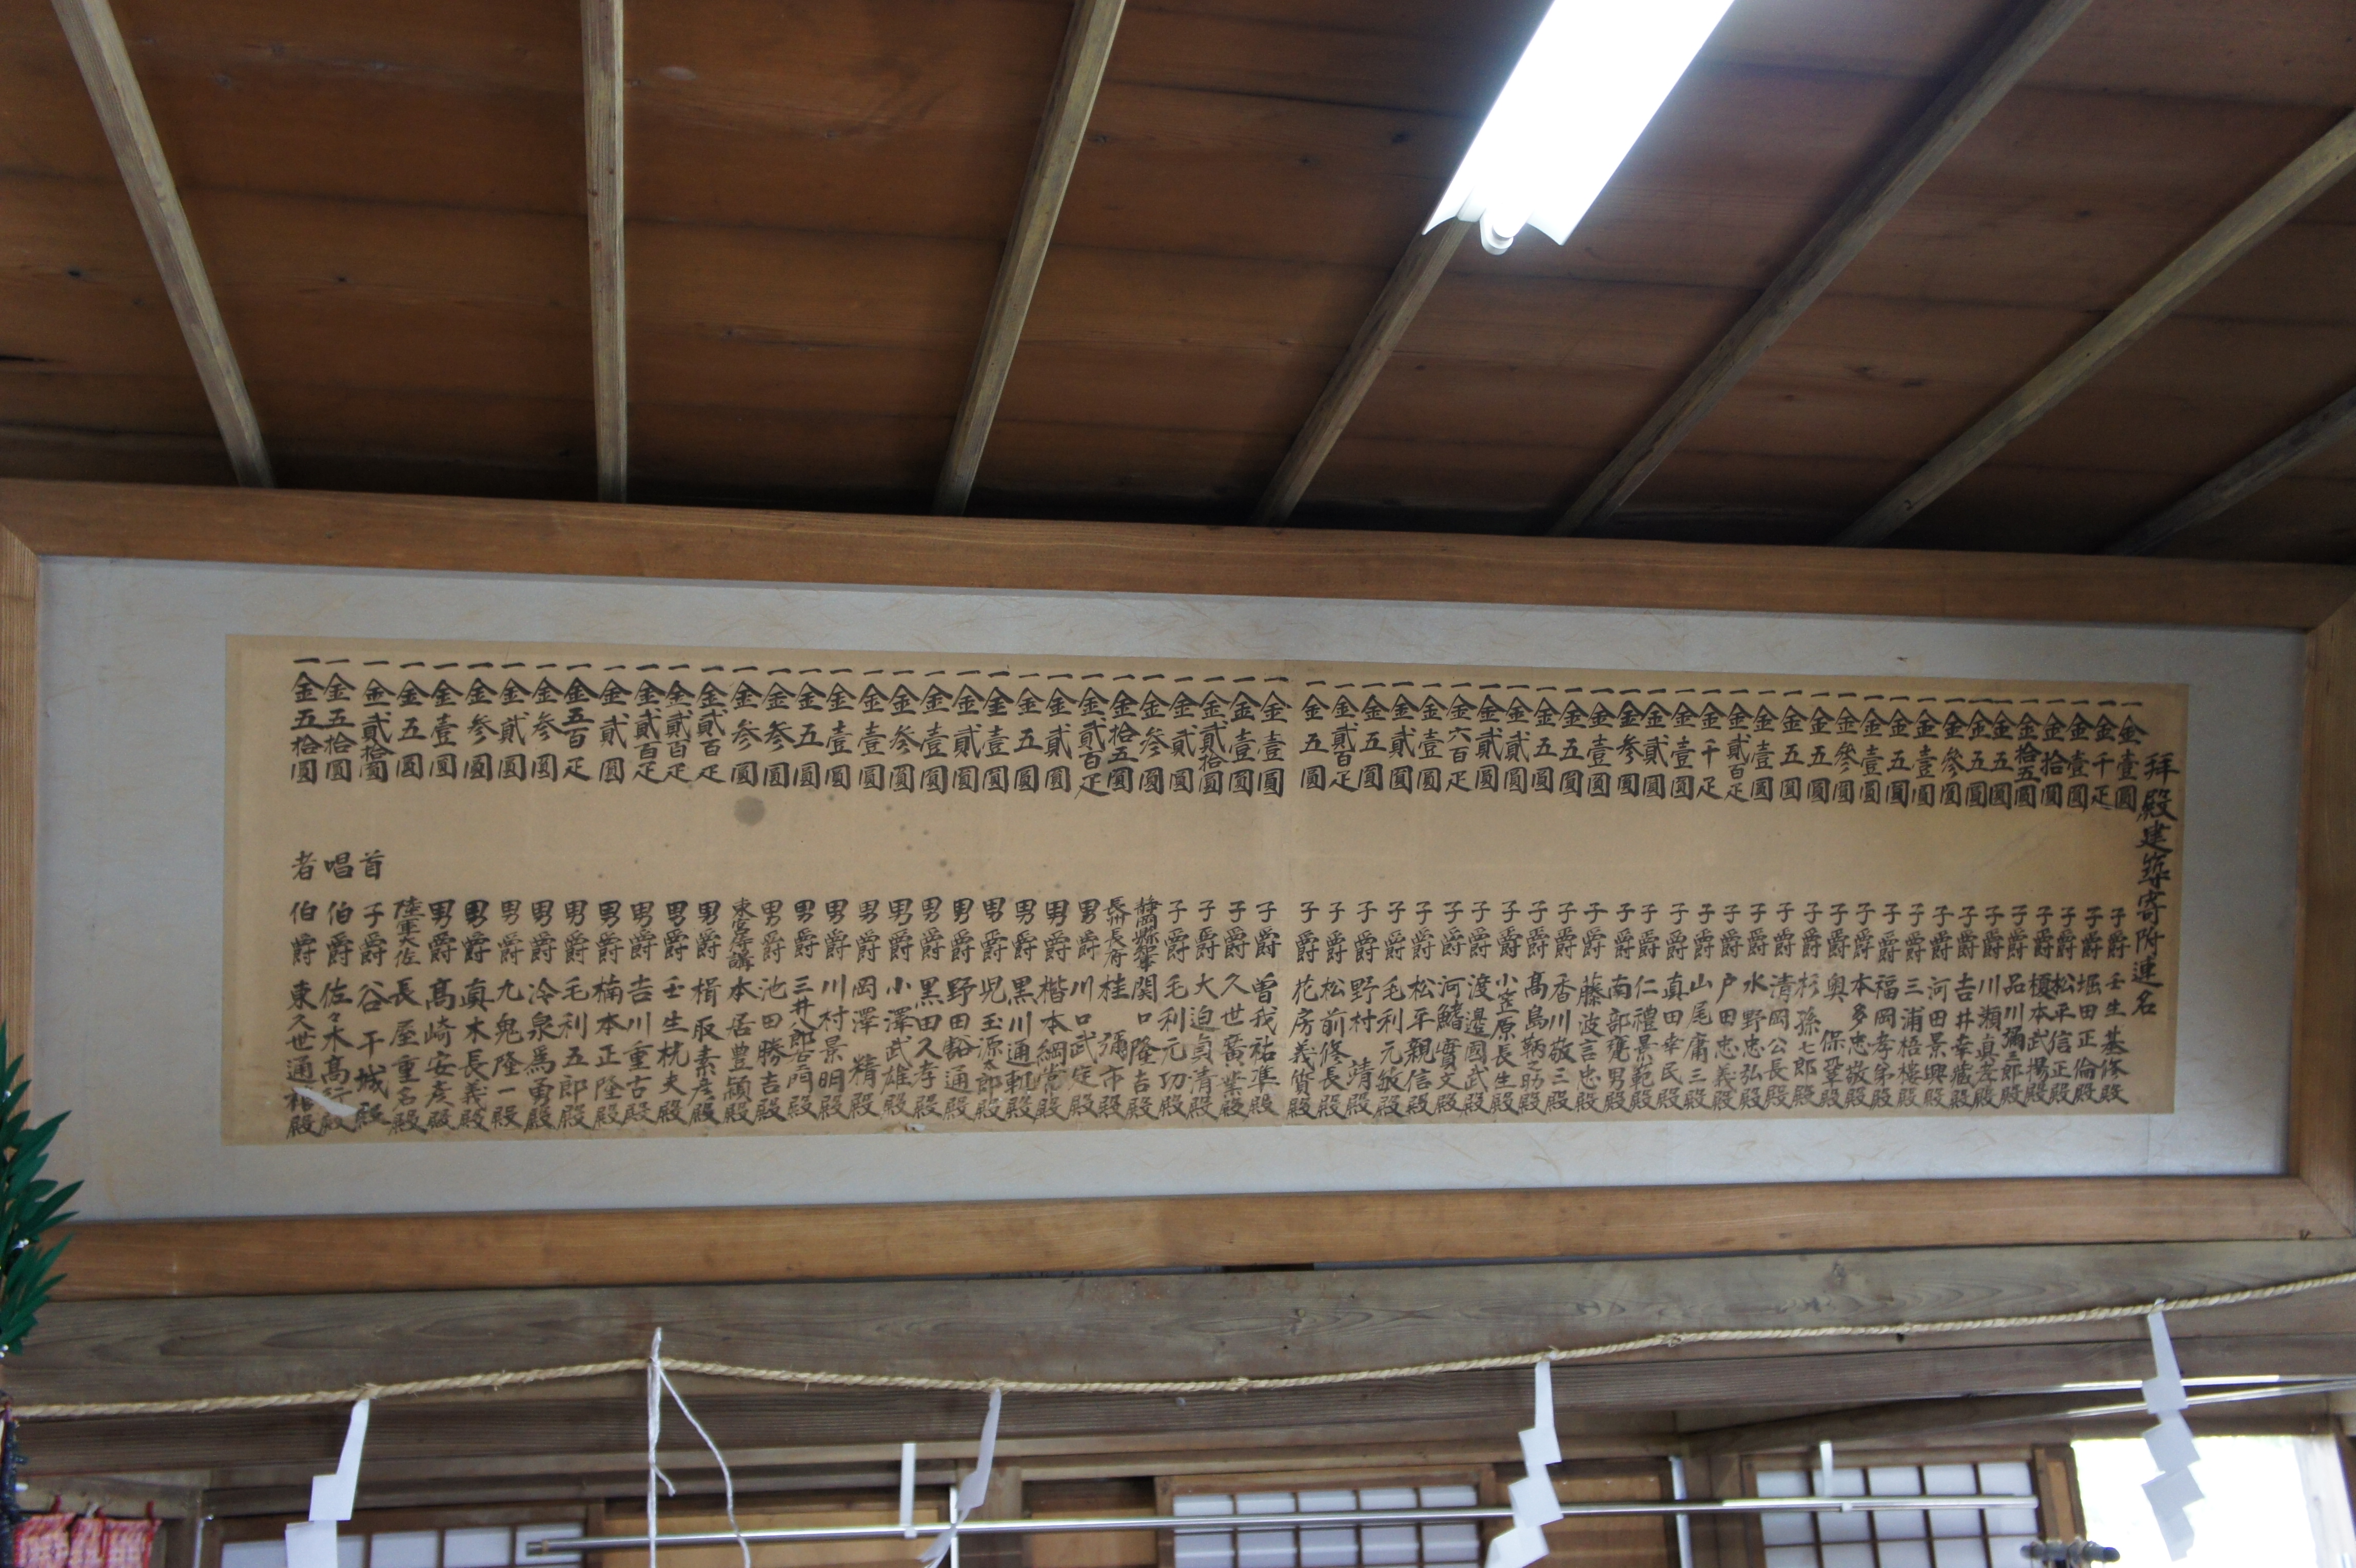 拜殿建築寄附連名
一金壹圓 子爵 壬生基修殿
一金千疋 子爵 堀田正倫殿
一金壹圓 子爵 松平信正殿
一金拾圓 子爵 榎本武揚殿
一金拾五圓 子爵 品川彌二郎殿
一金五圓 子爵 川瀬真孝殿
一金五圓 子爵 吉井幸蔵殿
一金参圓 子爵 河田景興殿
一金壹圓 子爵 三浦梧樓殿
一金五圓 子爵 福岡孝弟殿
一金壹圓 子爵 本多忠敬殿
一金参圓 子爵 奥保鞏殿
一金五圓 子爵 杉孫七郎殿
一金五圓 子爵 清岡公長殿
一金壹圓 子爵 水野忠弘殿
一金貳百疋 子爵 戸田忠義殿
一金千疋 子爵 山尾庸三殿
一金壹圓 子爵 真田幸民殿
一金貳圓 子爵 仁禮景範殿
一金参圓 子爵 南部甕男殿
一金壹圓 子爵 藤波言忠殿
一金五圓 子爵 香川敬三殿
一金五圓 子爵 髙島鞆之助殿
一金貳圓 子爵 小笠原長生殿
一金貳圓 子爵 渡邊國武殿
一金六百疋 子爵 河鰭實文殿
一金壹圓 子爵 松平親信殿
一金五圓 子爵 毛利元敏殿
一金五圓 子爵 野村靖殿
一金貳百疋 子爵 松前修長殿
一金五圓 子爵 花房義質殿
一金壹圓 子爵 曽我祐準殿
一金壹圓 子爵 久世廣業殿
一金貳拾圓 子爵 大迫貞清殿
一金貳圓 子爵 毛利元功殿
一金参圓 関口隆吉殿
一金拾五圓 長州長府 桂彌市殿
一金貳百疋 男爵 川口武定殿
一金貳圓 男爵 楷本綱常殿
一金五圓 男爵 黒川通軌殿
一金壹圓 男爵 児玉源太郎殿
一金貳圓 男爵 野田豁通殿
一金壹圓 男爵 黒田久孝殿
一金参圓 男爵 小澤武雄殿
一金壹圓 男爵 岡澤精殿
一金壹圓 男爵 川村景明殿
一金五圓 男爵 三井八郎右エ門殿
一金参圓 男爵 池田勝吉殿
一金参圓 東宮侍講 本居豊穎殿
一金貳百疋 男爵 楫取素彦殿
一金貳百疋 男爵 壬生桃夫殿
一金貳百疋 男爵 吉川重吉殿
一金貳圓 男爵 楠本正隆殿
一金五百疋 男爵 毛利五郎殿
一金参圓 男爵 冷泉為勇殿
一金貳圓 男爵 九鬼隆一殿
一金参圓 男爵 真木長義殿
一金壹圓 男爵 髙崎安彦殿
一金五圓 陸軍大佐 長屋重名殿
一金貳拾圓 首 子爵 谷干城殿
一金五拾圓 唱 伯爵 佐々木髙行殿
一金五拾圓 者 伯爵 東久世通禧殿